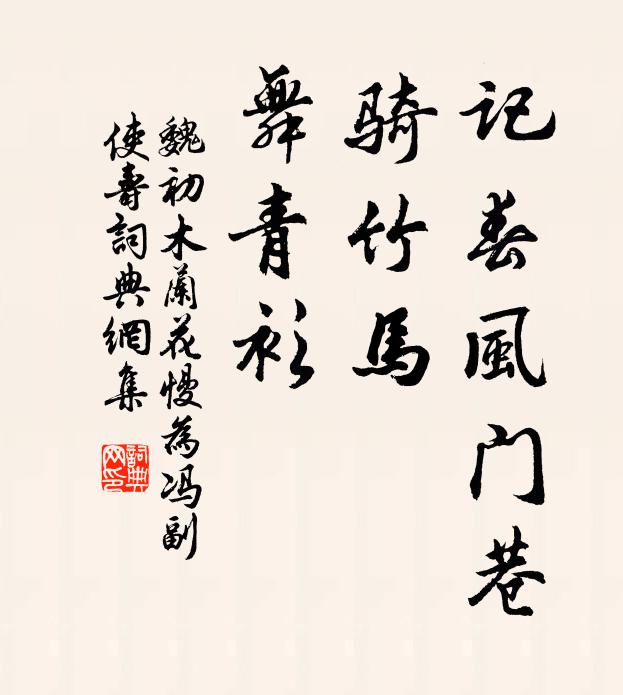 记春風门巷
骑竹馬
舞青衫
魏初木蘭花慢為冯副
使壽詞典網集
詞典
网印